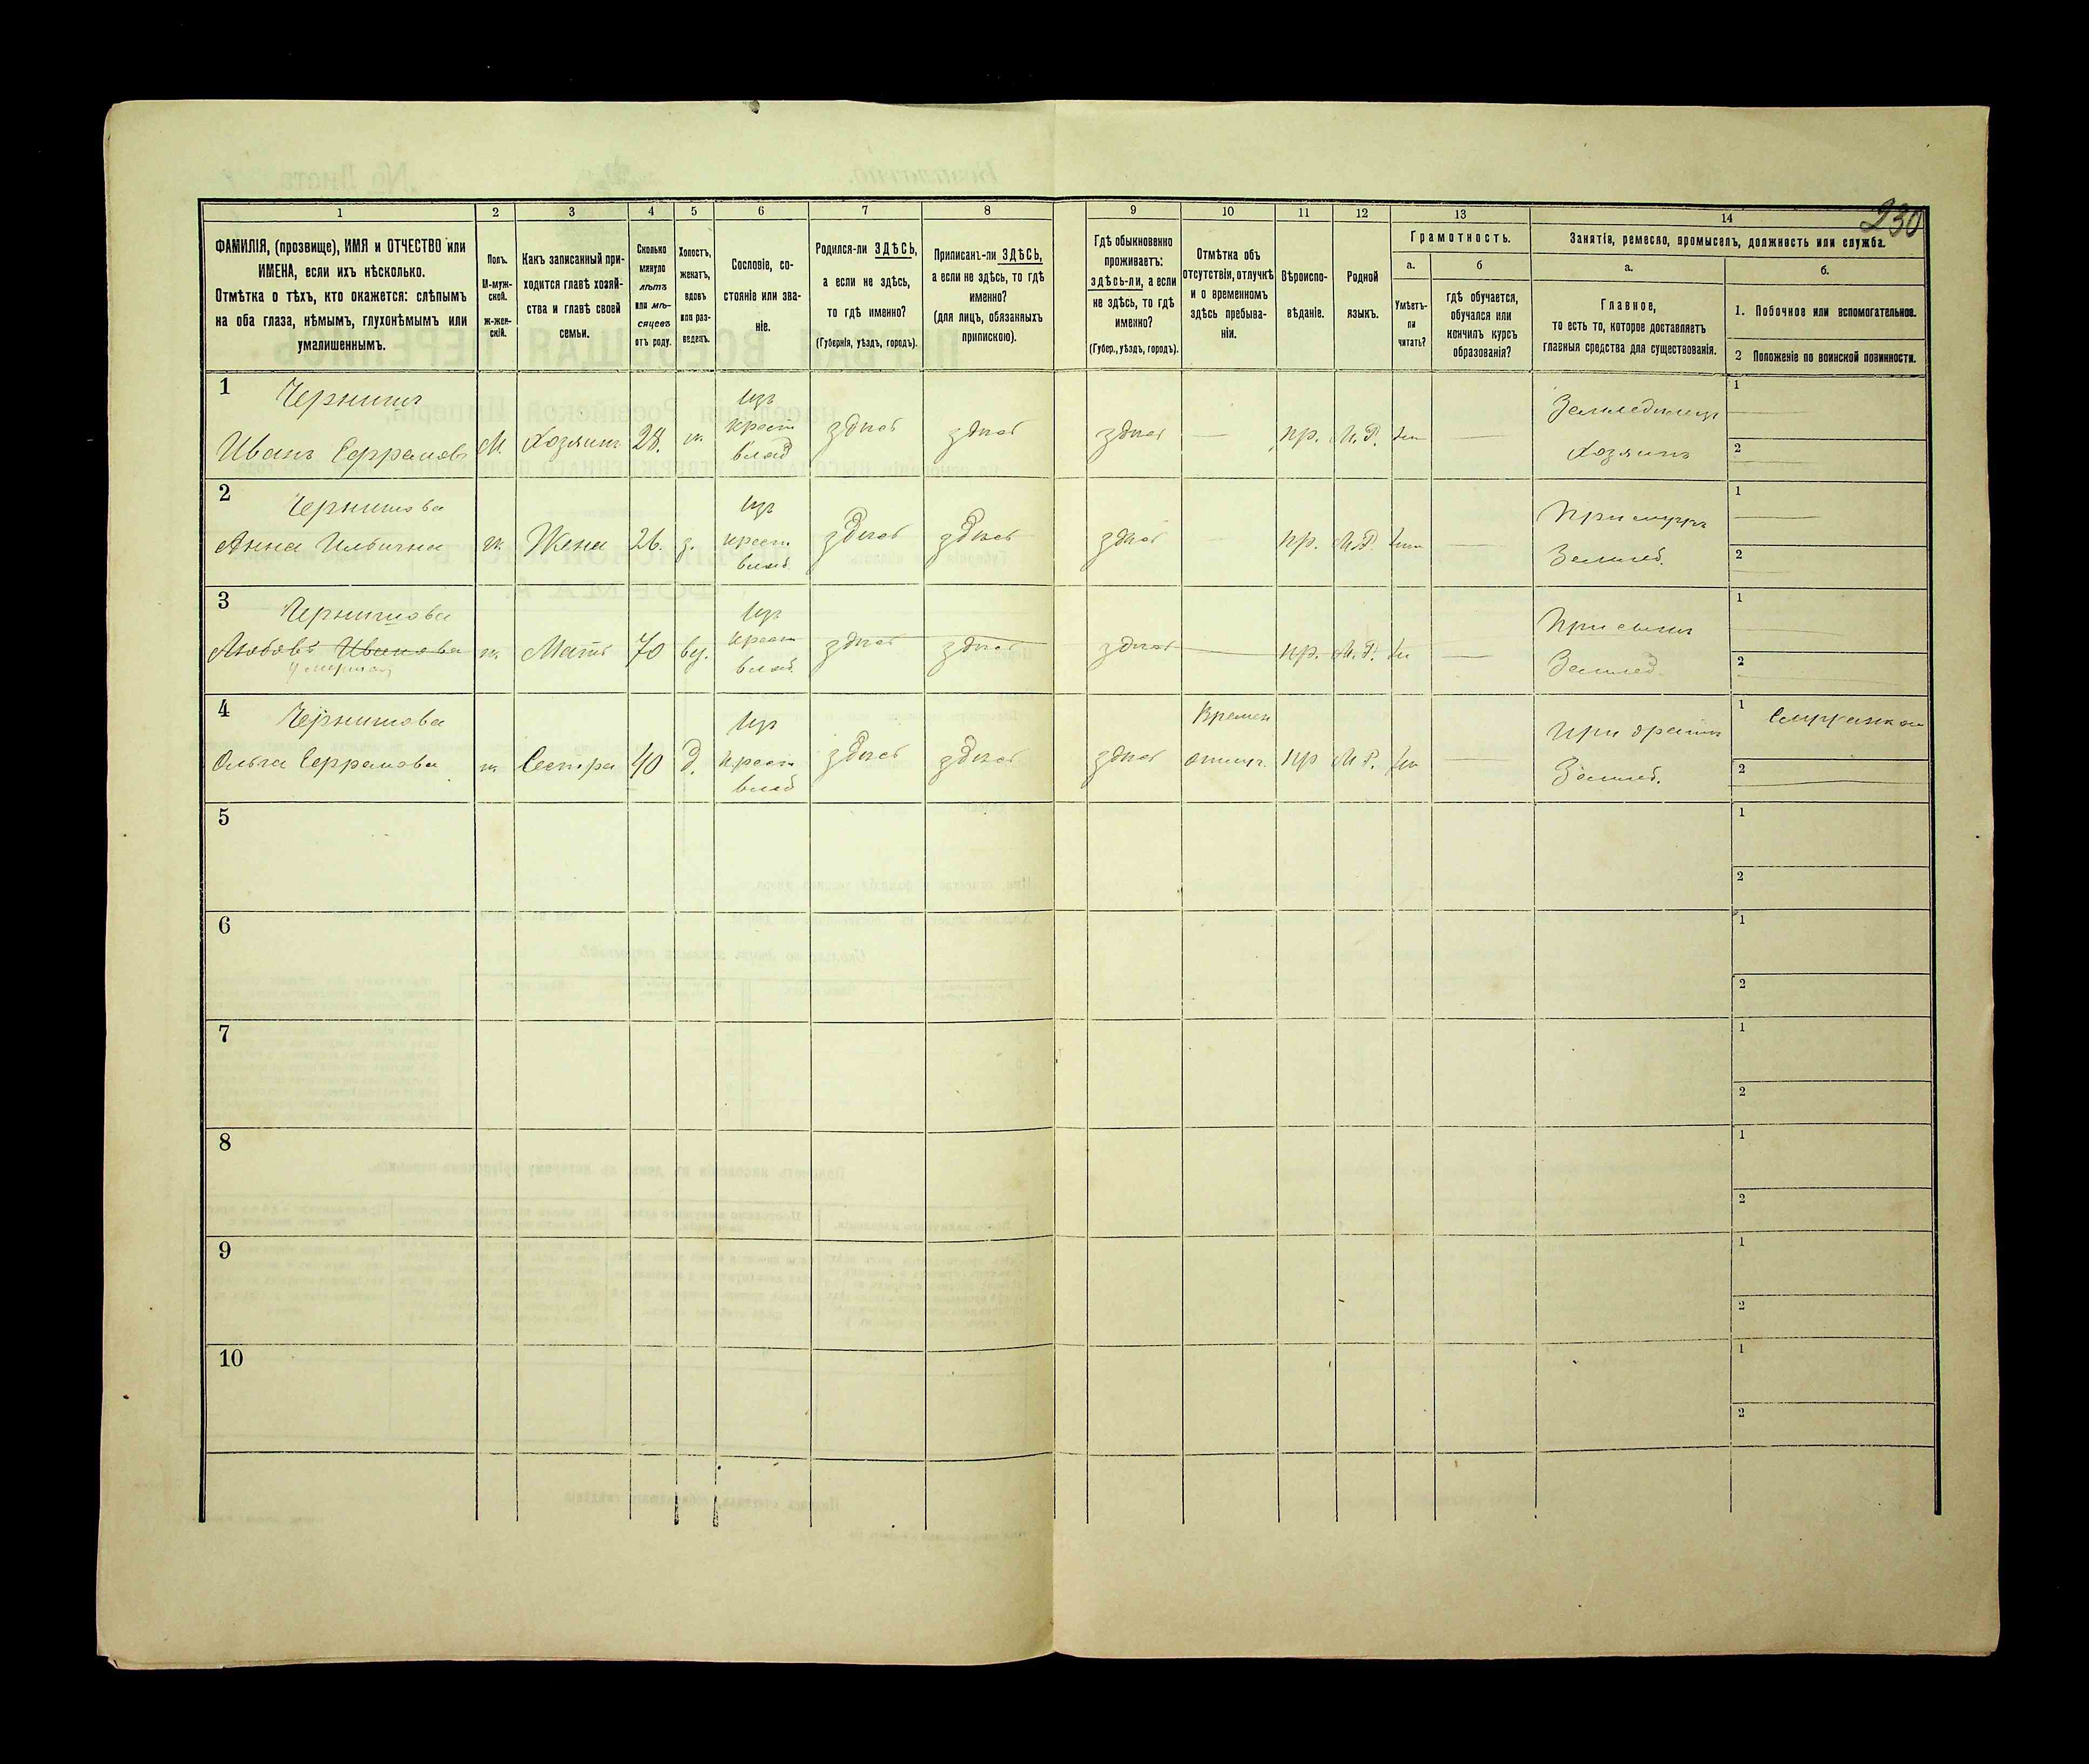 230
1 2 3 4 5 6 7 8 9 10 11 12 13 14
ФАМИЛІЯ, (прозвище), ИМЯ и ОТЧЕСТВО или
ИМЕНА, если ихъ нѣсколько.
Отмѣтка о тѣхъ, кто окажется: слѣпымъ
на оба глаза, нѣмымъ, глухонѣмымъ или
умалишеннымъ.
Полъ.
М-муж-
ской.
ж-жен-
скій.
Какъ записанный при-
ходится главѣ хозяй-
ства и главѣ своей
семьи.
Сколько
минуло
лѣтъ
или мѣ-
сяцевъ
отъ роду.
Холостъ,
женатъ,
вдовъ
или раз-
веденъ.
Сословіе, со-
стояніе или зва-
ніе.
Родился-ли ЗДѢСЬ,
а если не здѣсь,
то гдѣ именно?
(Губернія, уѣздъ, городъ).
Приписанъ-ли ЗДѢСЬ,
а если не здѣсь, то гдѣ
именно?
(для лицъ, обязанныхъ
припискою).
Гдѣ обыкновенно
проживаетъ:
здѣсь-ли, а если
не здѣсь, то гдѣ
именно?
(Губер., уѣздъ, городъ).
Отмѣтка объ
отсутствіи, отлучкѣ
и о временномъ
здѣсь пребыва-
ніи.
Вѣроиспо-
вѣданіе.
Родной
языкъ.
Грамотность.
а.
Умѣетъ-
ли
читать?
б
гдѣ обучается,
обучался или
кончилъ курсъ
образованія?
Занятія, ремесло, промыселъ, должность или служба.
а.
Главное,
то есть то, которое доставляетъ
главныя средства для существованія.
б.
1. Побочное или вспомогательное.
2 Положеніе по воинской повинности.
1
Иванъ Ефрамовъ М. Хозяинъ 28. ж. Изъ крест. влад здѣсь здѣсь здѣсь — пр. М.Р. — Земледѣлецъ
Хозяинъ
1
2
2 Чернишова
Анна Ильична ж. Жена 26. з. Изъ крест. влад. здѣсь здѣсь здѣсь — пр. М.Р. —
Землед.
1
2
3 Чернишова
Любовь Иванова ж. Мать 70 ву. Изъ крест. влад. здѣсь здѣсь здѣсь — пр. М.Р. — При сынѣ
Землед.
1
2
4 Чернишова
Ольга Ефрамова ж. Сестра 40 д. Изъ крест. влад здѣсь здѣсь здѣсь Времен отлуч. пр М.Р. — При братѣ
Землед.
1
2
5
1
2
6
1
2
7
1
2
8
1
2
9
1
2
10
1
2